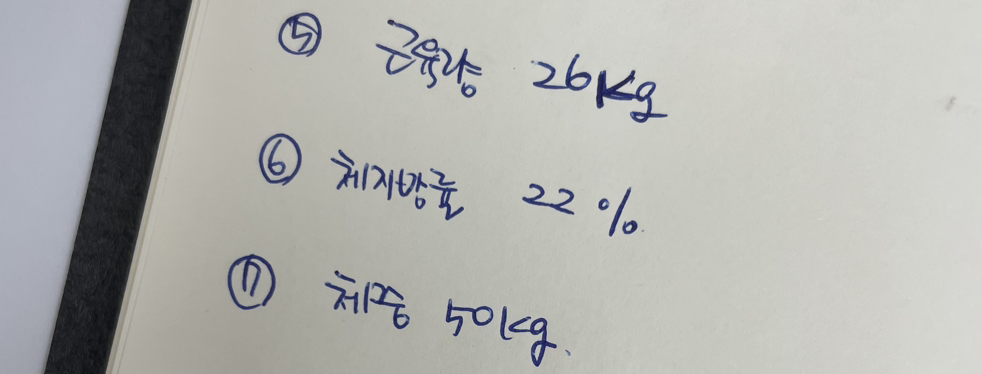 ⑤ 근육량 26Kg
⑥ 체지방률 22%
⑦ 체중 50kg.